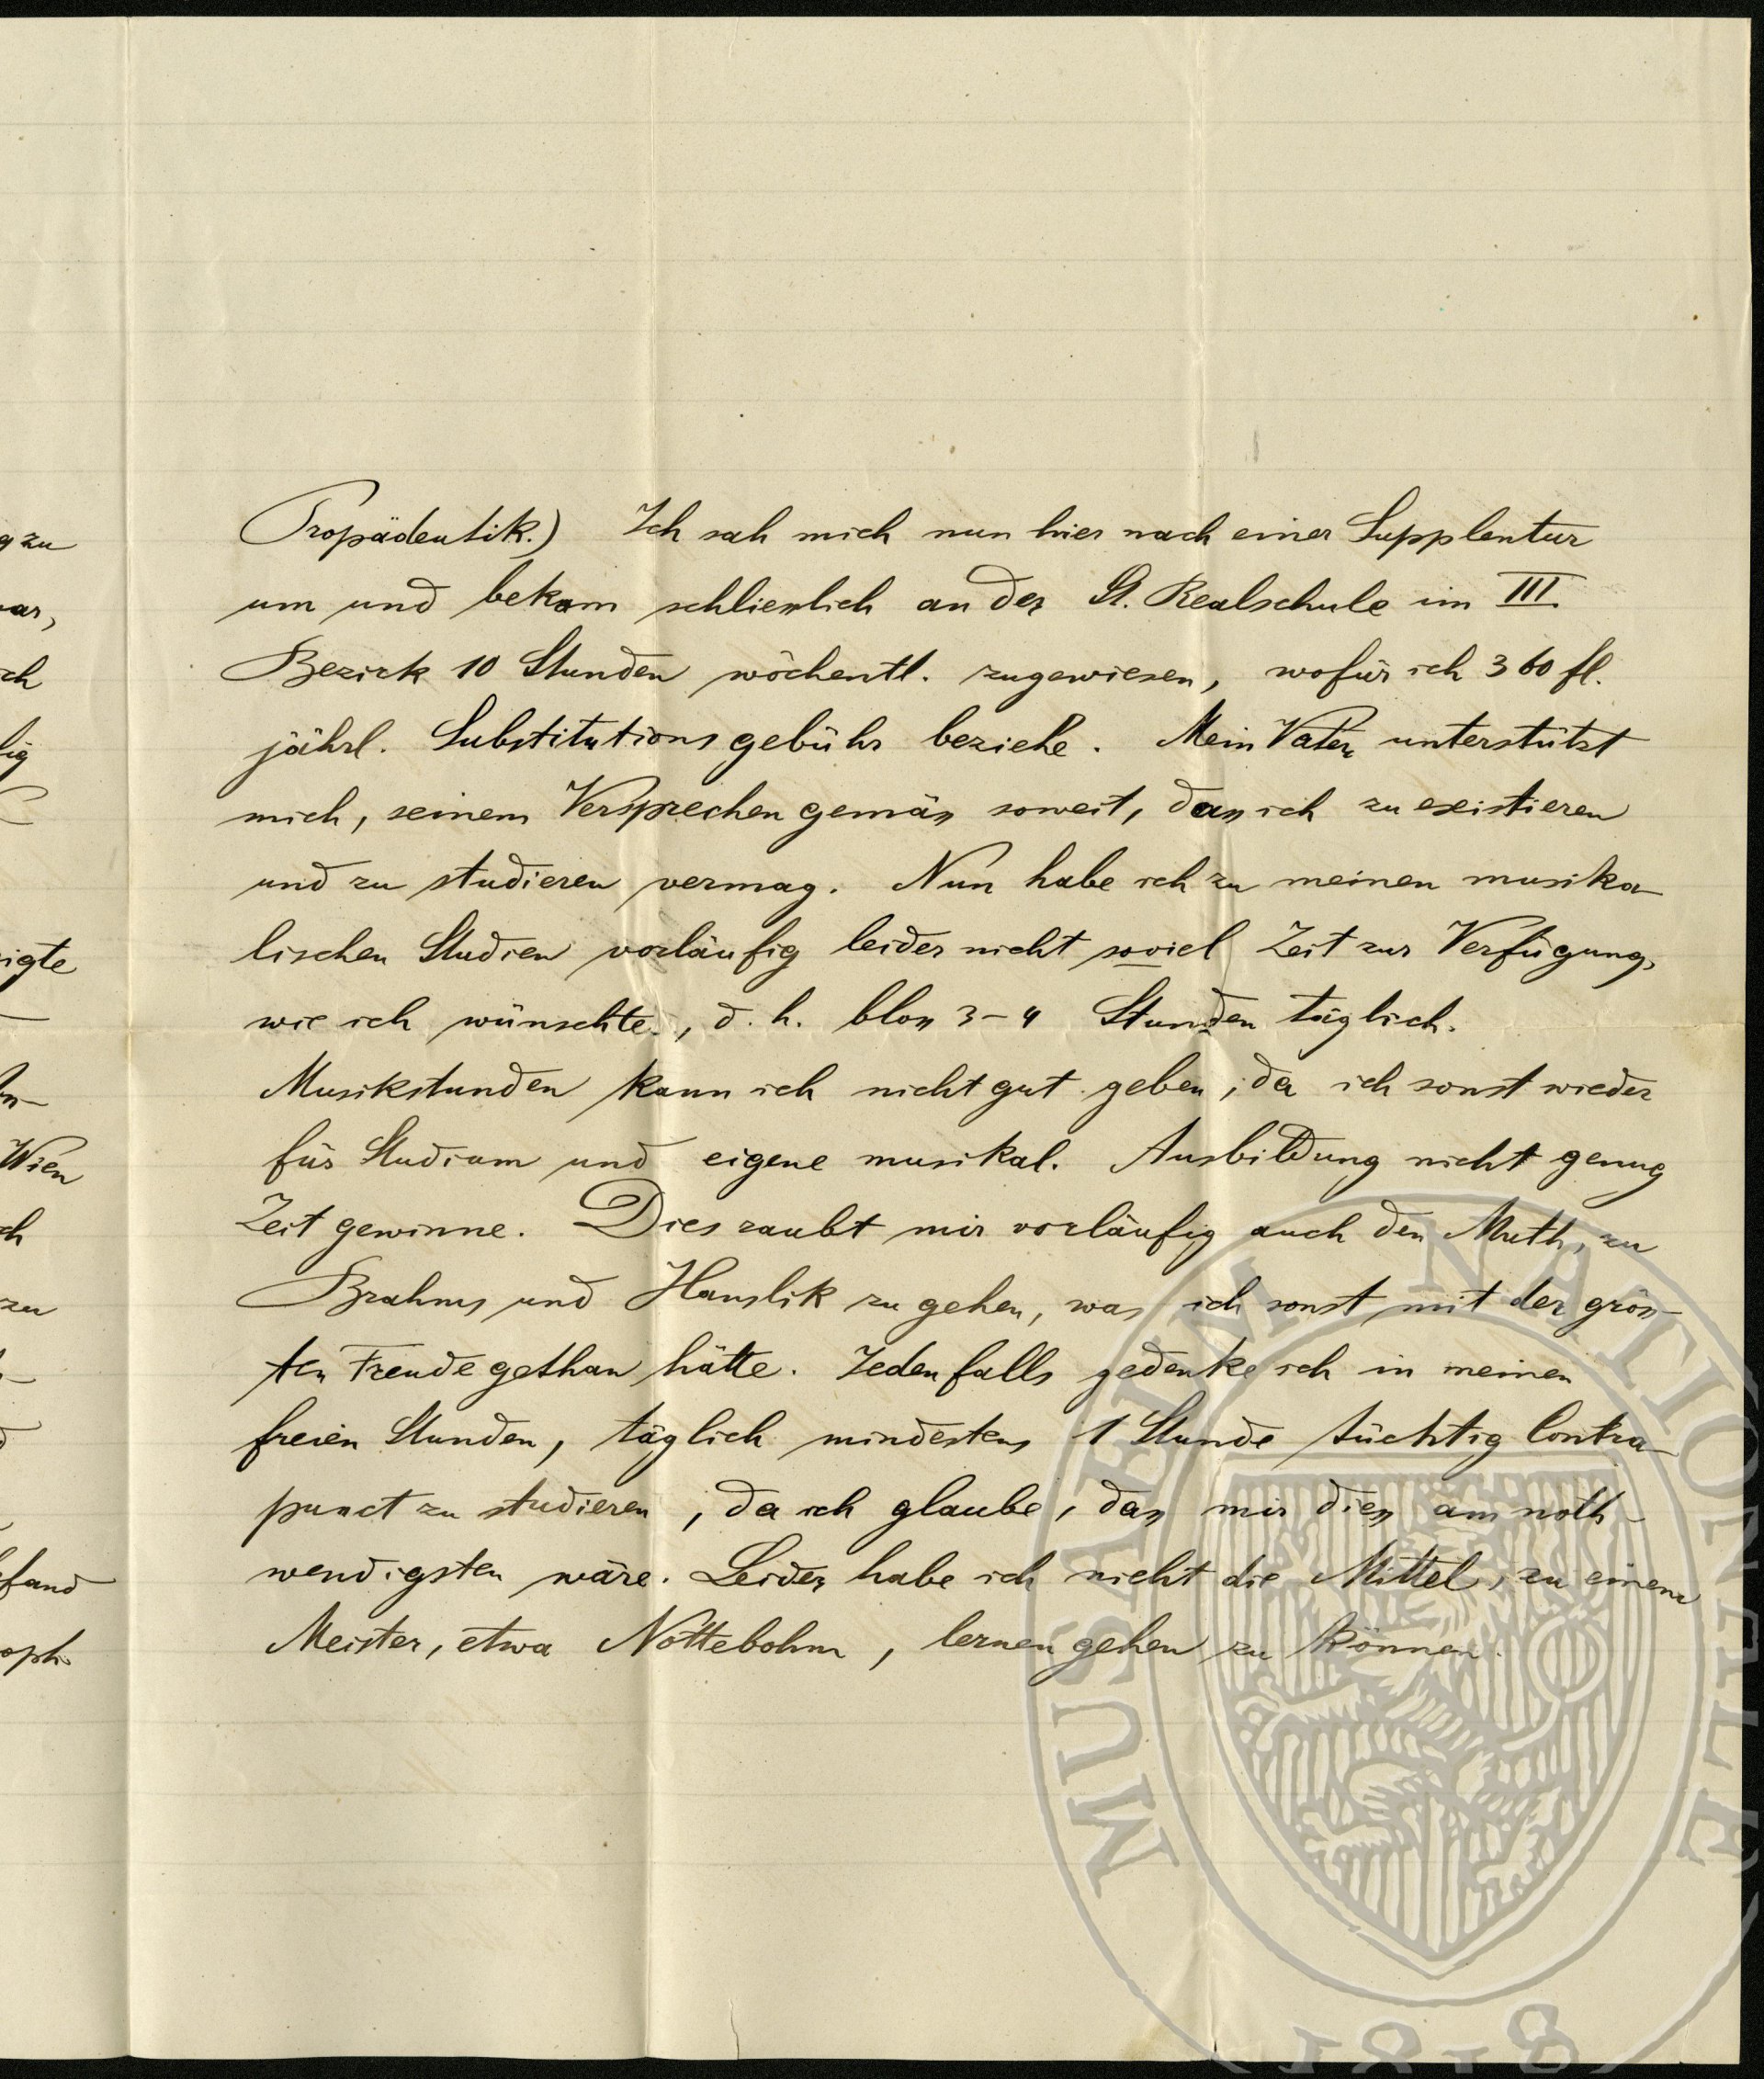 g zu
ar,
ch
ig
igte
Wien
ch
zu
fand
oph.
Propädeutik.) Ich sah mich nun hier nach einer Supplentur
um und bekam schließlich an der St. Realschule im III.
Bezirk 10 Stunden wöchentl. zugewiesen, wofür ich 360 fl.
jährl. Substitutionsgebühr beziehe. Mein Vater unterstützt
mich, seinem Versprechen gemäß soweit, daß ich zu existieren
und zu studieren vermag. Nun habe ich zu meinen musika-
lischen Studien vorläufig leider nicht soviel Zeit zur Verfügung,
wie ich wünschte, d. h. bloß 3–4 Stunden täglich.
Musikstunden kann ich nicht gut geben, da ich sonst wieder
für Studium und eigene musikal. Ausbildung nicht genug
Zeit gewinne. Dies raubt mir vorläufig auch den Muth, zu
Brahms und Hanslik zu gehen, was ich sonst mit der größ-
ten Freude gethan hätte. Jedenfalls gedenke ich in meinen
freien Stunden, täglich mindestens 1 Stunde tüchtig Contra-
punct zu studieren, da ich glaube, daß mir dieß am noth-
wendigsten wäre. Leider habe ich nicht die Mittel, zu einem
Meister, etwa Nottebohm, lernen gehen zu können.
MUSAEUM NATIONALE
1818